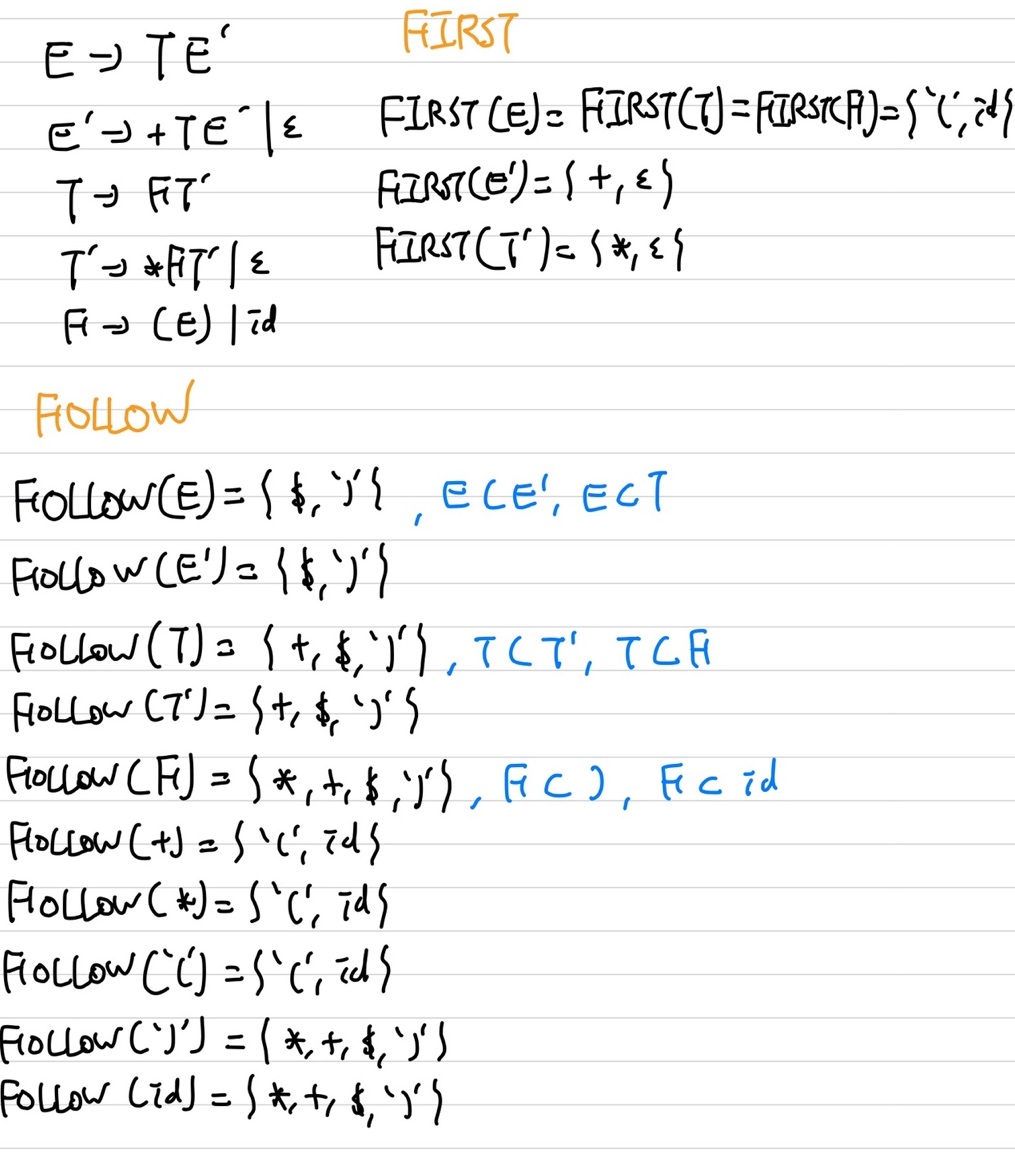 FIRST
E → TE'
E' → +TE' | ε
T → FT'
T' → *FT' | ε
F → (E) | id
FIRST(E) = FIRST(T) = FIRST(F) = {'(', id}
FIRST(E') = {+, ε}
FIRST(T') = {*, ε}
FOLLOW
FOLLOW(E) = {$, ')'} , E ⊂ E', E ⊂ T
FOLLOW(E') = {$, ')'}
FOLLOW(T) = {+, $, ')'} , T ⊂ T', T ⊂ F
FOLLOW(T') = {+, $, ')'}
FOLLOW(F) = {*, +, $, ')'} , F ⊂ ), F ⊂ id
FOLLOW(+) = {'(', id}
FOLLOW(*) = {'(', id}
FOLLOW('(') = {'(', id}
FOLLOW(')') = {*, +, $, ')'}
FOLLOW(id) = {*, +, $, ')'}